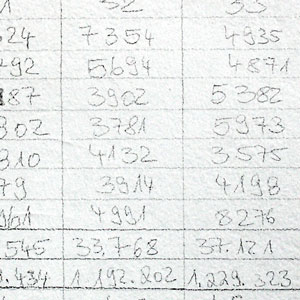 624 7354 4935
292 5694 4871
187 3902 5382
802 3781 5973
310 4132 3575
79 3914 4198
961 4991 8276
545 33.768 37.121
.434 1.192.202 1.229.323